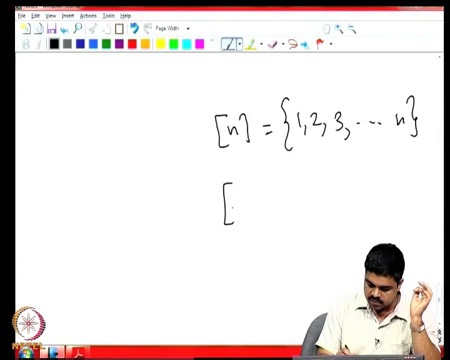 File Edit View Insert Actions Tools Help
Page Width
[n] = {1, 2, 3, .... n}
[